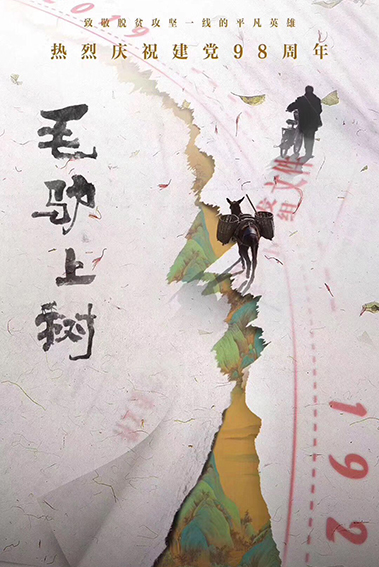 致敬脱贫攻坚一线的平凡英雄
热烈庆祝建党98周年
毛驴上树
文件
192